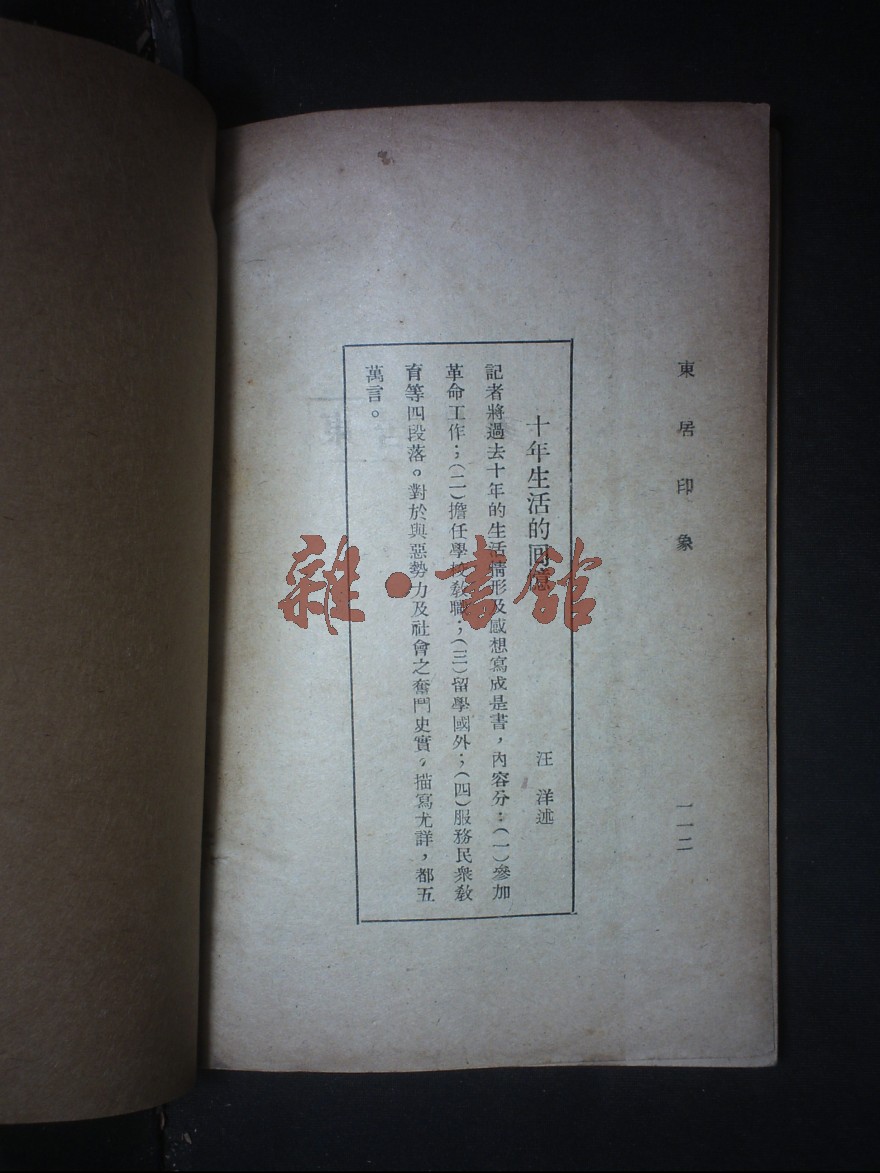 東居印象
一一二
十年生活的回憶
汪洋述
記者將過去十年的生活情形及感想寫成是書，內容分：（一）參加
革命工作；（二）擔任學校教職；（三）留學國外；（四）服務民衆教
育等四段落。對於與惡勢力及社會之奮鬥史實，描寫尤詳，都五
萬言。
雜·書館